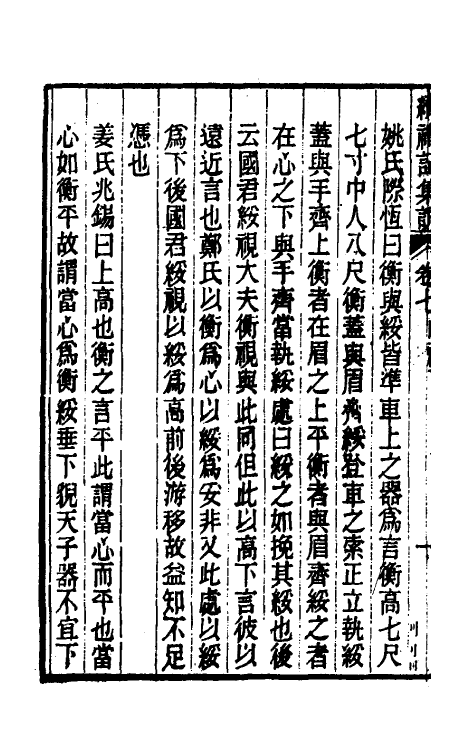 續禮記集說 卷七十
姚氏際恆曰衡與綏皆準車上之器為言衡高七尺
七寸中人八尺衡蓋與眉齊綏登車之索正立執綏
蓋與手齊上衡者在眉之上平衡者與眉齊綏之者
在心之下與手齊當執綏處曰綏之如挽其綏也後
云國君綏視大夫衡視與此同但此以高下言彼以
遠近言也鄭氏以衡為心以綏為妥非又此處以綏
為下後國君綏視以綏為高前後游移故益知不足
憑也
姜氏兆錫曰上高也衡之言平此謂當心而平也當
心如衡平故謂當心為衡綏垂下貌天子器不宜下